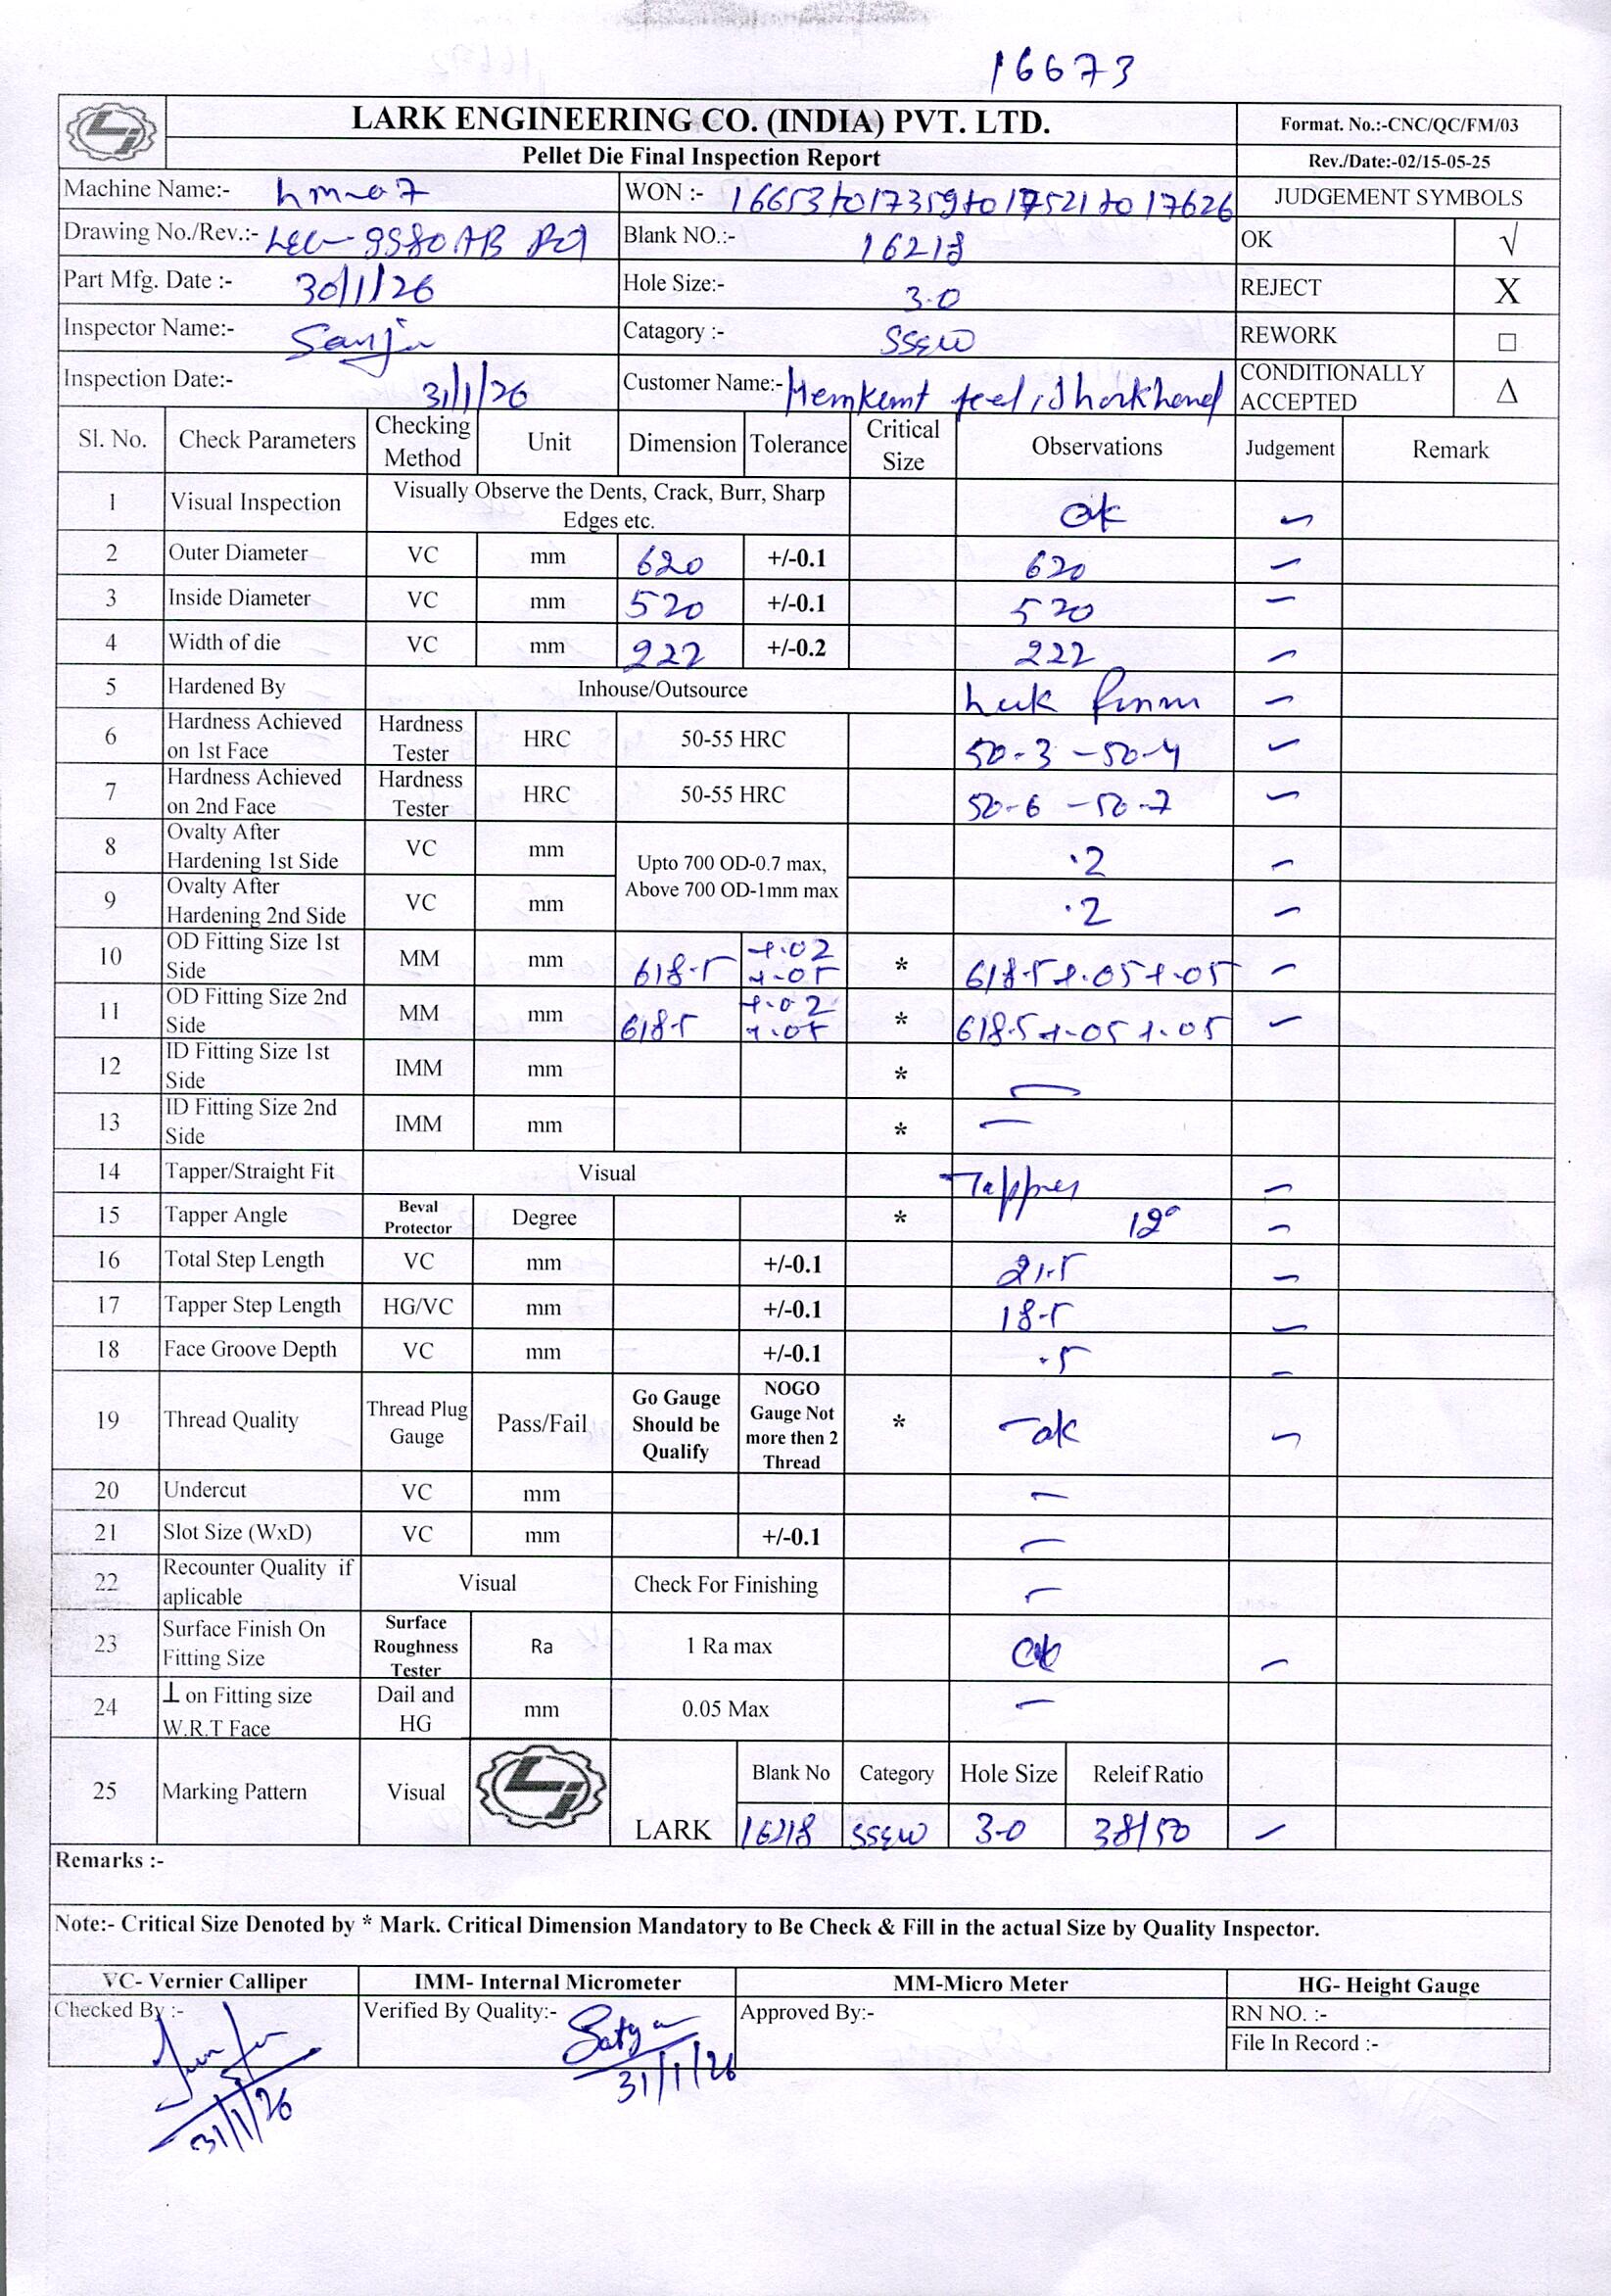 16673
LARK ENGINEERING CO. (INDIA) PVT. LTD.
Format. No.:-CNC/QC/FM/03
Pellet Die Final Inspection Report
Rev./Date:-02/15-05-25
Machine Name:-
WON :- 16653 to 17359 to 17521 to 17626
JUDGEMENT SYMBOLS
Drawing No./Rev.:-
Blank NO.:- 16218
OK √
Part Mfg. Date :- 30/1/26
Hole Size:- 3.0
REJECT X
Inspector Name:-
Catagory :-
REWORK □
Inspection Date:- 31/1/26
Customer Name:-
CONDITIONALLY ACCEPTED Δ
Sl. No. Check Parameters Checking Method Unit Dimension Tolerance Critical Size Observations Judgement Remark
1 Visual Inspection Visually Observe the Dents, Crack, Burr, Sharp Edges etc. ok
2 Outer Diameter VC mm 620 +/-0.1 620
3 Inside Diameter VC mm 520 +/-0.1 520
4 Width of die VC mm 222 +/-0.2 222
5 Hardened By Inhouse/Outsource
6 Hardness Achieved on 1st Face Hardness Tester HRC 50-55 HRC 50.3 - 50.4
7 Hardness Achieved on 2nd Face Hardness Tester HRC 50-55 HRC 50.6 - 50.7
8 Ovalty After Hardening 1st Side VC mm Upto 700 OD-0.7 max, Above 700 OD-1mm max .2
9 Ovalty After Hardening 2nd Side VC mm .2
10 OD Fitting Size 1st Side MM mm 618.5 +.02 +.05 * 618.5 +.05 +.05
11 OD Fitting Size 2nd Side MM mm 618.5 +.02 +.05 * 618.5 +.05 +.05
12 ID Fitting Size 1st Side IMM mm * —
13 ID Fitting Size 2nd Side IMM mm * —
14 Tapper/Straight Fit Visual Tapper
15 Tapper Angle Beval Protector Degree * 12°
16 Total Step Length VC mm +/-0.1 21.5
17 Tapper Step Length HG/VC mm +/-0.1 18.5
18 Face Groove Depth VC mm +/-0.1 .5
19 Thread Quality Thread Plug Gauge Pass/Fail Go Gauge Should be Qualify NOGO Gauge Not more then 2 Thread * ok
20 Undercut VC mm —
21 Slot Size (WxD) VC mm +/-0.1 —
22 Recounter Quality if aplicable Visual Check For Finishing —
23 Surface Finish On Fitting Size Surface Roughness Tester Ra 1 Ra max ok
24 ⊥ on Fitting size W.R.T Face Dail and HG mm 0.05 Max —
25 Marking Pattern Visual LARK Blank No Category Hole Size Releif Ratio
16218 3.0 38/50
Remarks :-
Note:- Critical Size Denoted by * Mark. Critical Dimension Mandatory to Be Check & Fill in the actual Size by Quality Inspector.
VC- Vernier Calliper IMM- Internal Micrometer MM-Micro Meter HG- Height Gauge
Checked By :- Verified By Quality:- Satya Approved By:- RN NO. :-
File In Record :-
31/1/26
31/1/26